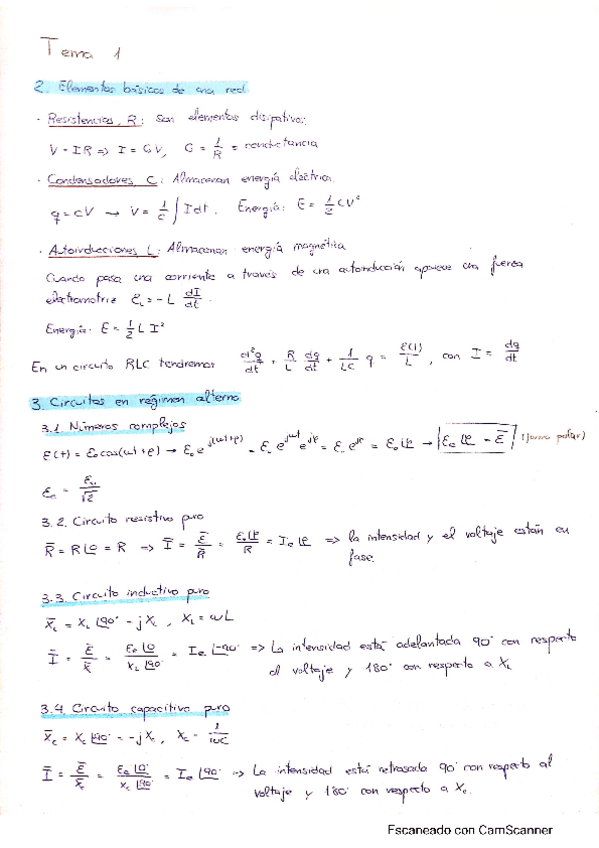 Tema 1
2. Elementos básicos de una red.
· Resistencias, R: Son elementos disipativos.
V = IR => I = GV, G = 1/R = conductancia
· Condensadores, C: Almacenan energía eléctrica.
q = CV → V = 1/C ∫ I dt. Energía: E = 1/2 CV²
· Autoinducciones L: Almacenan energía magnética
Cuando pasa una corriente a través de una autoinducción aparece una fuerza
electromotriz ε_L = - L dI/dt.
Energía: E = 1/2 L I²
En un circuito RLC tendremos d²q/dt + R/L dq/dt + 1/LC q = ε(t)/L, con I = dq/dt
3. Circuitos en régimen alterno
3.1. Números complejos
ε(t) = ε₀ cos(ωt+φ) → ε₀ e^j(ωt+φ) = ε₀ e^jωt e^jφ = ε₀ e^jφ = ε₀ ∠φ → ε_e ∠φ = ε̄ (forma polar)
ε_e = ε₀/√2
3.2. Circuito resistivo puro
R̄ = R∠0 = R => Ī = ε̄/R̄ = ε_e∠φ/R = I_e ∠φ => la intensidad y el voltaje están en
fase.
3.3. Circuito inductivo puro
X̄_L = X_L ∠90° = jX_L, X_L = ωL
Ī = ε̄/X̄ = ε_e∠0/X_L∠90° = I_e ∠-90° => La intensidad está adelantada 90° con respecto
al voltaje y 180° con respecto a X_L
3.4. Circuito capacitivo puro
X̄_c = X_c ∠-90° = -jX_c, X_c = 1/ωC
Ī = ε̄/X̄_c = ε_e∠0°/X_c∠-90° = I_e ∠90° => La intensidad está retrasada 90° con respecto al
voltaje y 180° con respecto a X_c.
Escaneado con CamScanner